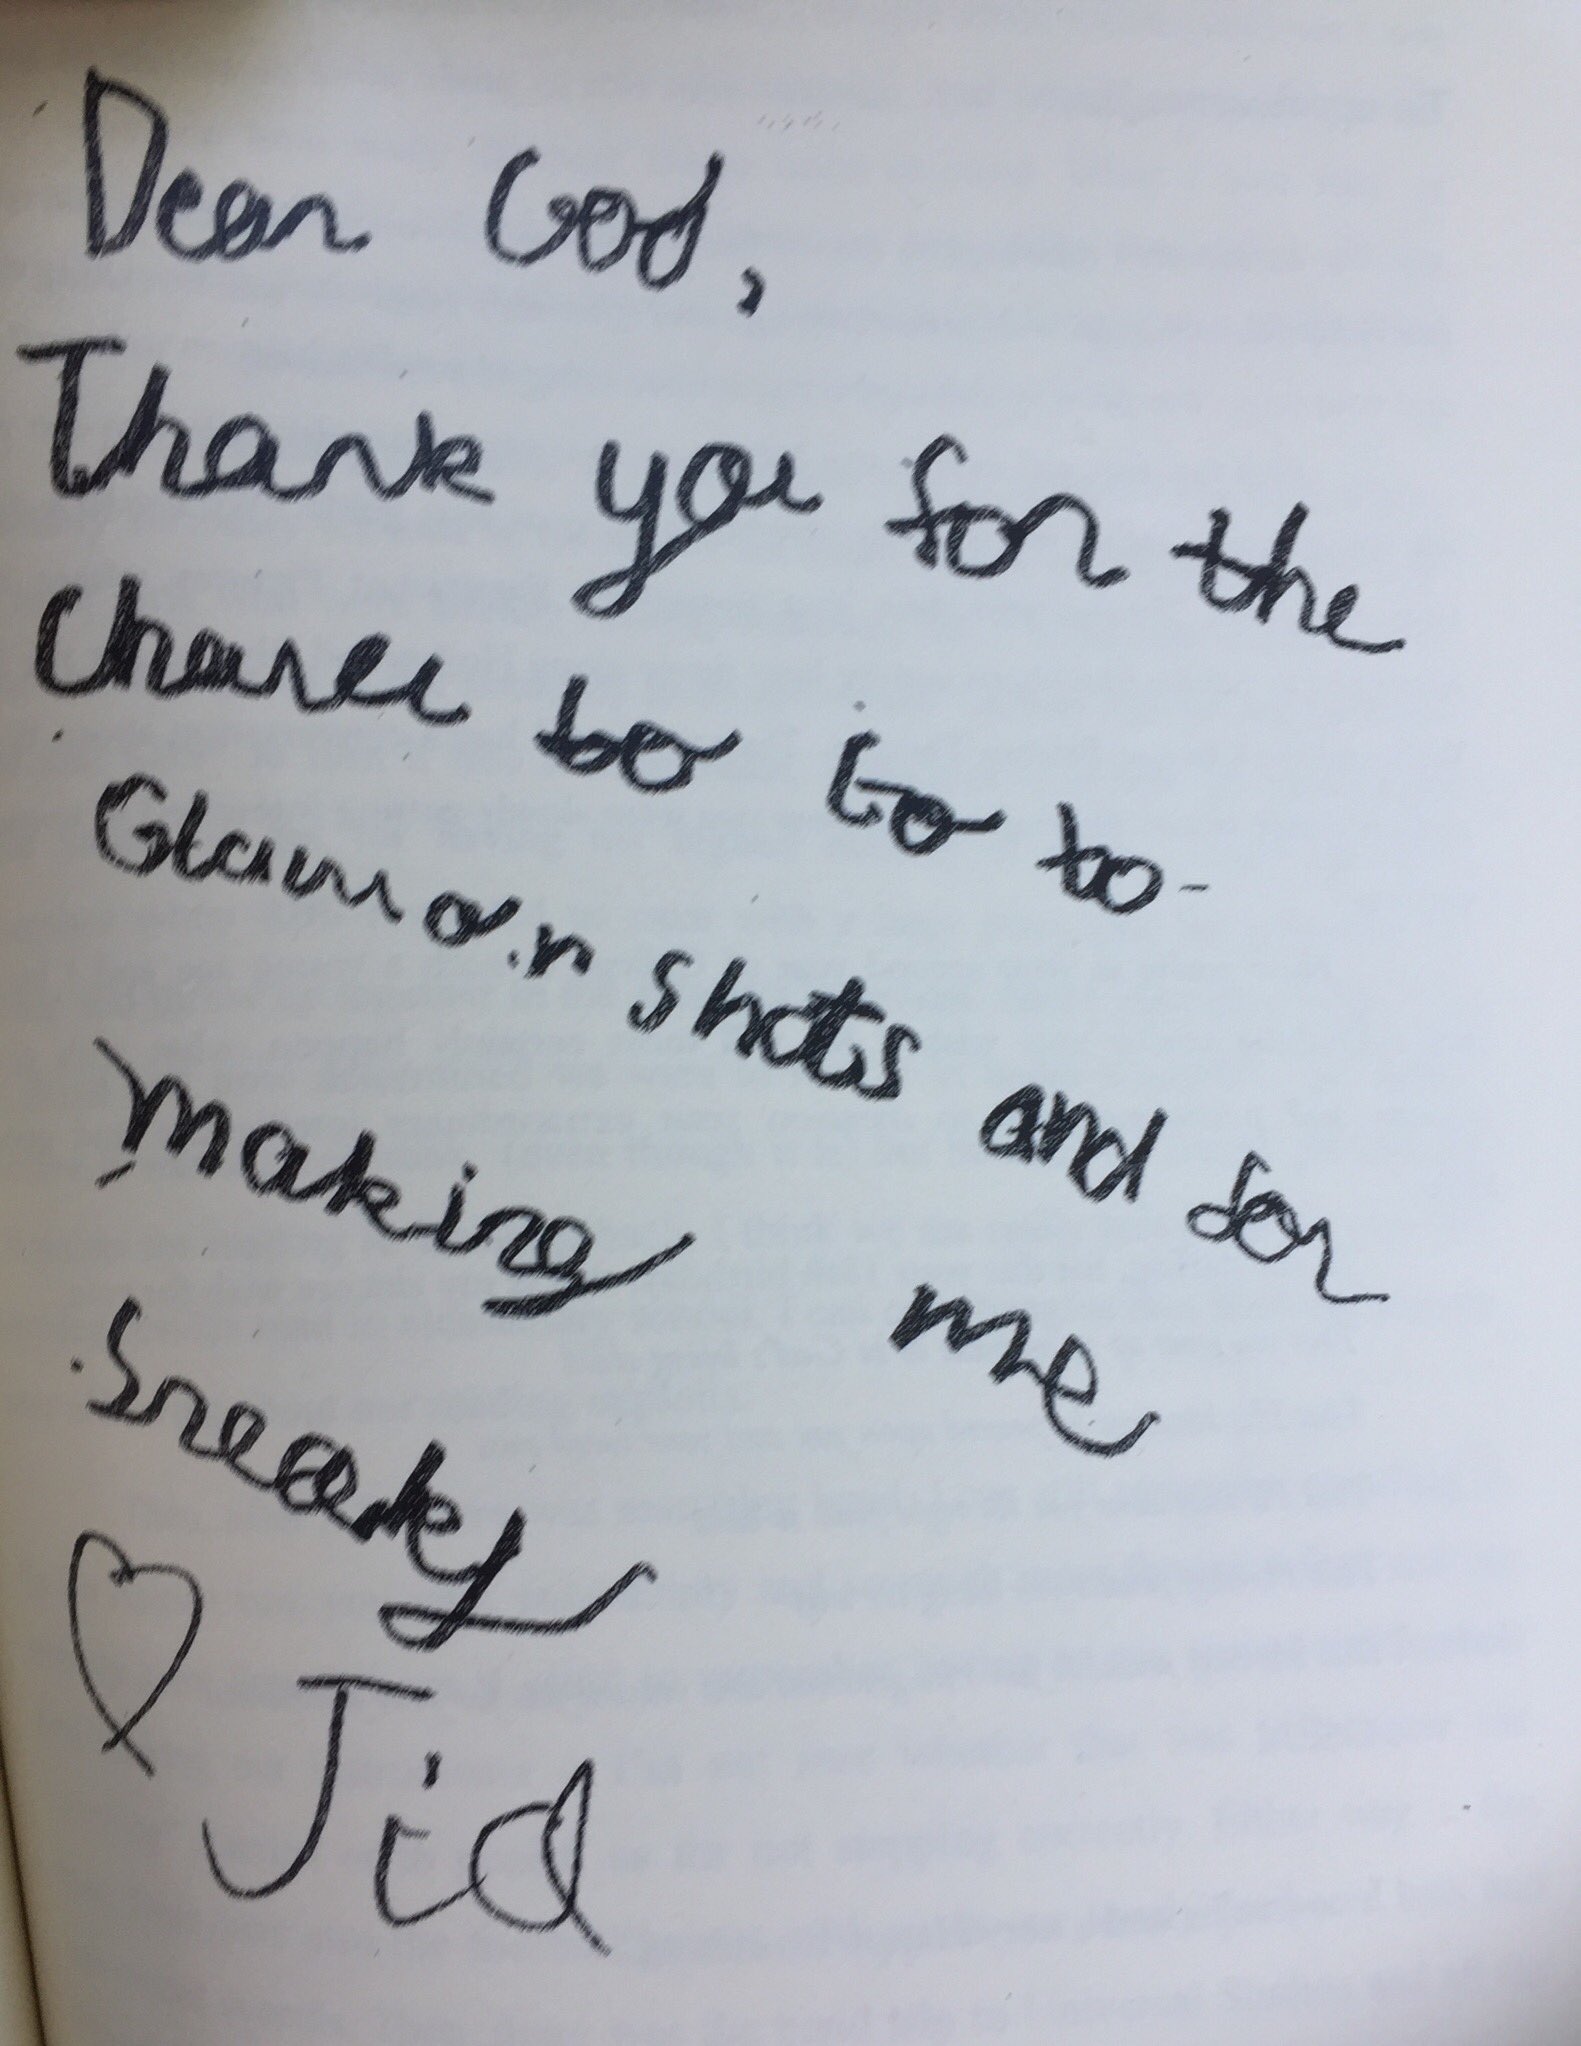 Dear God,
Thank you for the
Chance to Go to
Glamor shots and for
making me
Sneaky
♡ Jid